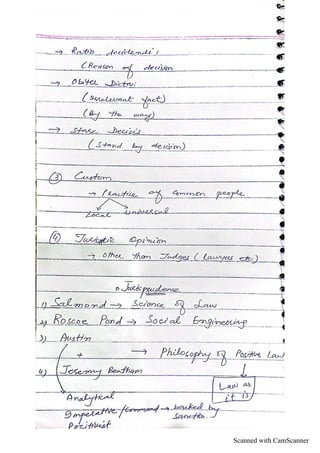 → Ratio decidendi:
(Reason of decision
→ Obiter Dicta:
(irrelevant fact)
(By the way)
→ Stare Decisis
(Stand by decision)
③ Custom
→ Practice of common people
Local Universal
④ Juristic Opinion
→ Other than Judges (Lawyers etc.)
o Jurispudence
1) Salmond → Science of Law
2) Roscoe Pond → Social Engineering
3) Austin
+ → Philosophy of Positive Law
4) Jeremy Bentham
Law as
it is
Analytical
Imperative/command → backed by
Sanction.
Positivist
Scanned with CamScanner